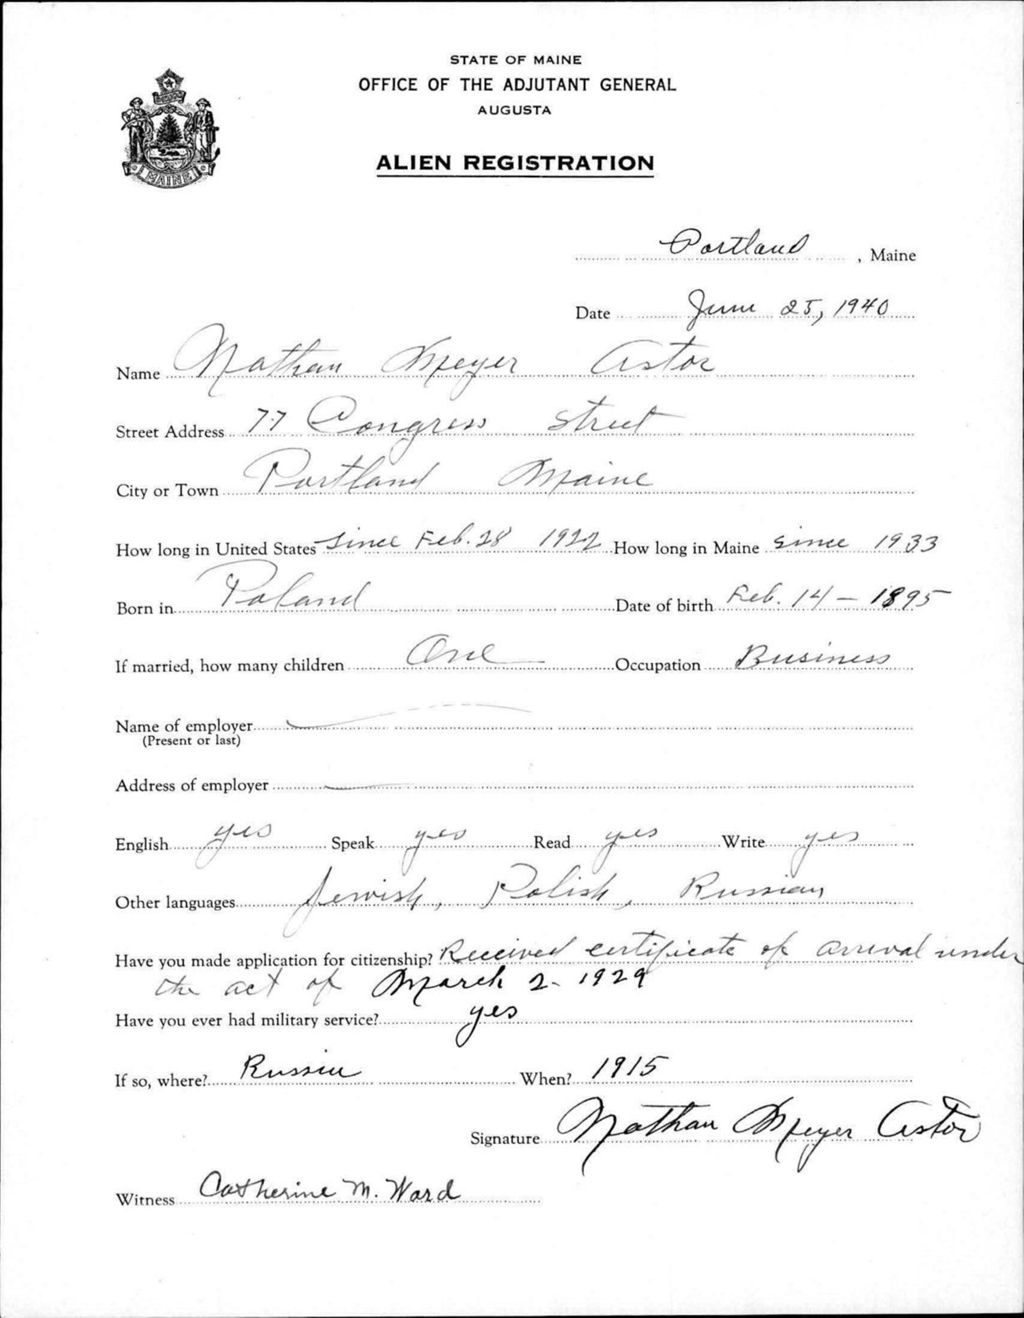 STATE OF MAINE
OFFICE OF THE ADJUTANT GENERAL
AUGUSTA
ALIEN REGISTRATION
MAINE
Portland, Maine
Date June 25, 1940
Name Nathan Meyer Astor
Street Address 77 Congress Street
City or Town Portland Maine
How long in United States Since Feb. 28 1922 How long in Maine Since 1933
Born in Poland Date of birth Feb. 14 - 1895
If married, how many children One Occupation Business
Name of employer
(Present or last)
Address of employer
English yes Speak yes Read yes Write yes
Other languages Jewish, Polish, Russian
Have you made application for citizenship? Received certificate of arrival under
the act of March 2 - 1929
Have you ever had military service? yes
If so, where? Russia When? 1915
Signature Nathan Meyer Astor
Witness Catherine M. Ward